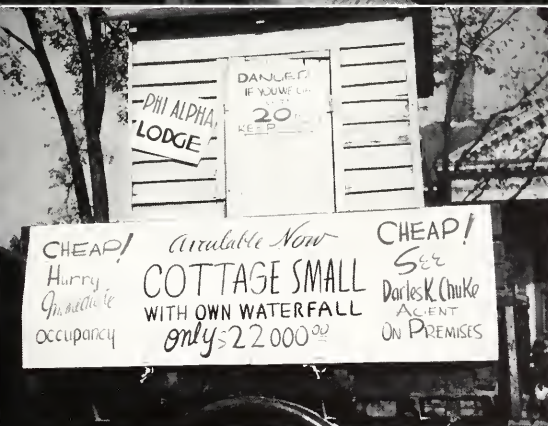 DANGER
IF YOU WE
20
KEEP
PHI ALPHA
LODGE
CHEAP!
Hurry
Immediate
occupancy
Available Now
COTTAGE SMALL
WITH OWN WATERFALL
only $22000.00
CHEAP!
SEE
Darles K. Chuke
AGENT
ON PREMISES